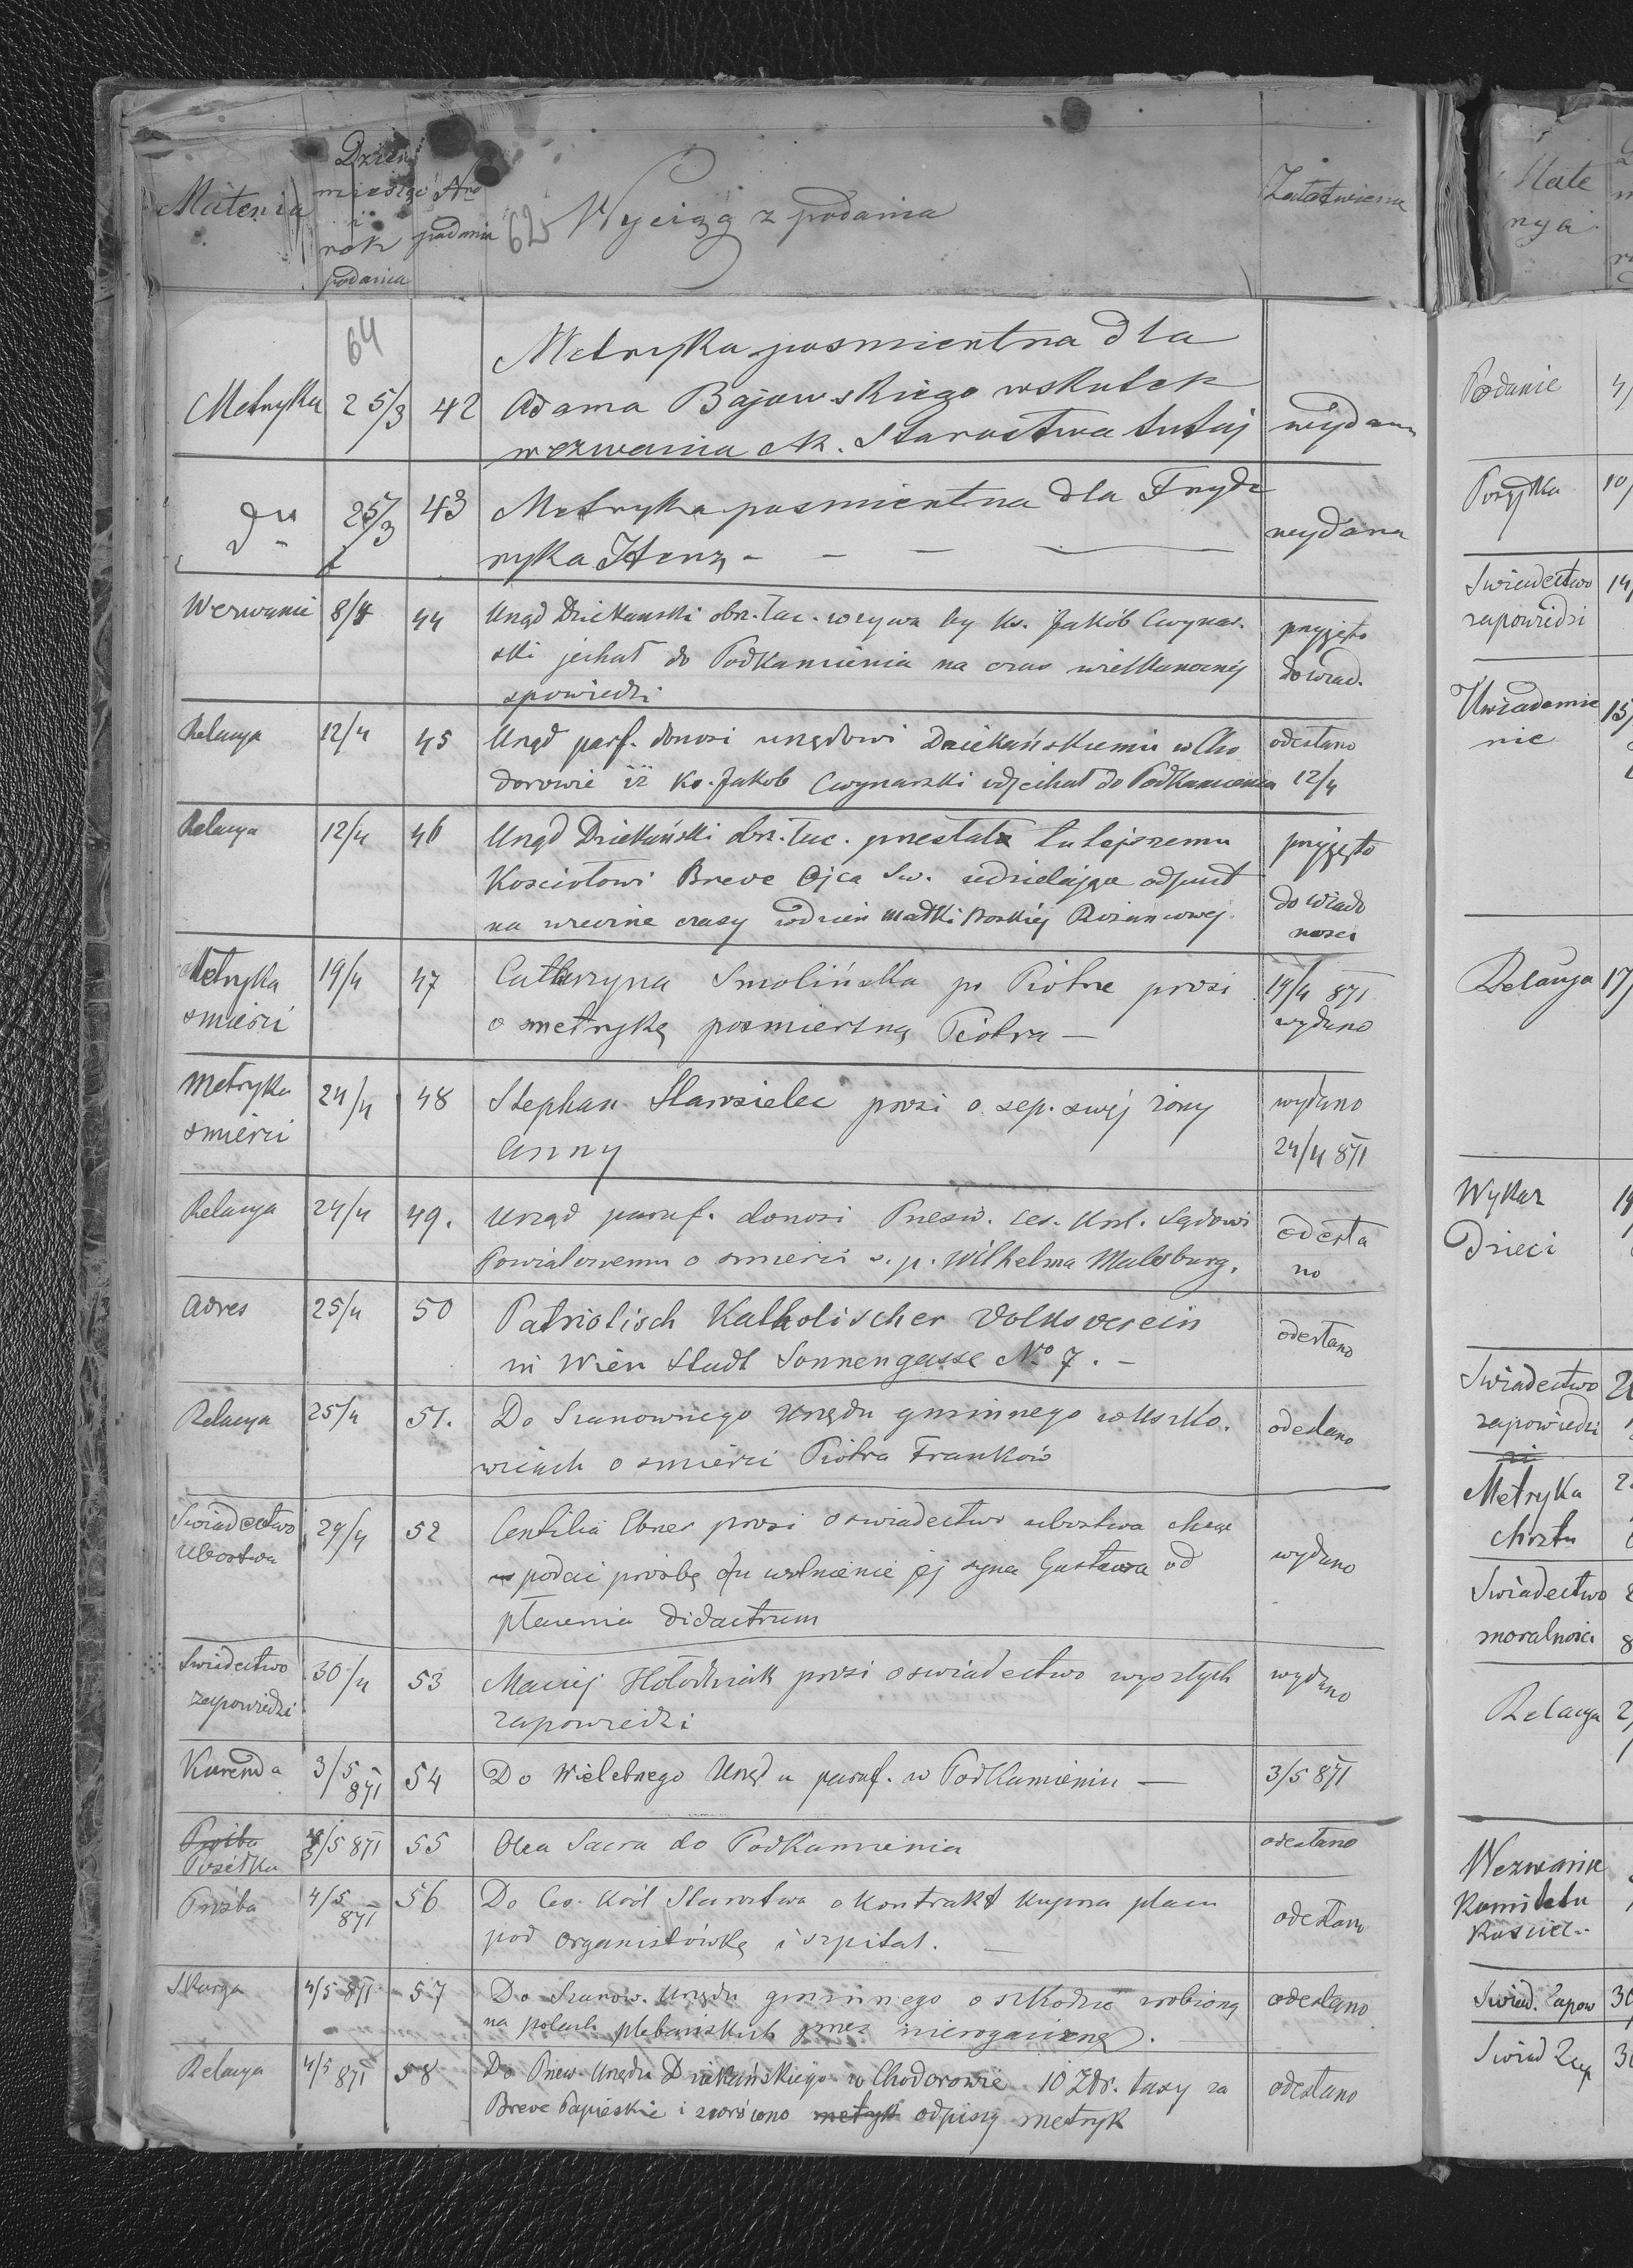 Materia
Dzień
miesiąc
i
rok
podania
Nro
podania
62
Wyciąg z podania
Załatwienie
64
Metryka 25/3 42 Metryka posmiertna dla
Adama Bajowskiego wskutek
wezwania ck. Starostwa tutej wydana
dto 25/3 43 Metryka posmiertna dla Fryde
ryka Henz - - - wydana
Wezwanie 8/4 44 Urząd Dziekanski obrz. łac. wzywa by ks. Jakób Cwynar. przyjęto
ski jechał do Podkamienia na czas wielkanocnéj do wiad.
spowiedzi
Relacya 12/4 45 Urząd parf. donosi urzędowi Dziekańskiemu w Cho odesłano
dorowie iż ks. Jakob Cwynarski odjechał do Podkamienia 12/4
Relacya 12/4 46 Urząd Dziekański obrz. łac. przestała tutejszemu przyjęto
Kosciołowi Breve Ojca Sw. udzielające odpust do wiado
na wieczne czasy w dzień Matki Boskiéj Rożancowej. mosci
Metryka 19/4 47 Catharzyna Smolińska po Piotrze prosi 19/4 871
smierci o metrykę posmiertną Piotra — wydano
Metryka 24/4 48 Stephan Starosielec prosi o sep. swéj żony wydano
smierci Anny 24/4 871
Relacya 24/4 49. Urząd paraf. donosi Przesw. ces. Król. Sądowi odesła
Powiatowemu o smierci s. p. Wilhelma Malsburg. no
Adres 25/4 50 Patriotisch Katholischer Volksverein
in Wien Stadt Sonnengasse No 7. - odesłano
Relacya 25/4 51. Do Szanownego Urzędu gminnego w Uszko. odesłano
wicach o smierci Piotra Franków
Swiadectwo 29/4 52 Ebner prosi o swiadectwo ubostwa chcąc
ubostwa podać prosbę o uwolnienie jéj syna Gustawa od wydano
płacenia didactrum
Swiadectwo 30/4 53 Maciej Hołodniak prosi o swiadectwo wyszłych wydano
zapowiedzi zapowiedzi
Kurenda 3/5 871 54 Do Wielebnego Urzędu paraf. w Podkamieniu — 3/5 871
Prośba
Posełka 3/5 871 55 Olea Sacra do Podkamienia odesłano
Prośba 4/5 871 56 Do Ces. Król Starostwa o Kontrakt Kupna placu odesłano
pod organistówkę i szpital. —
Skarga 4/5 871 57 Do Szanow. Urzędu gminnego o szkodzie zrobioną odesłano
na polach plebańskich przez nierogaciznę. —
Relacya 4/5 871 58 Do Przew. Urzędu Dziekańskiego w Chodorowie 10 Złr. taxy za odesłano
Breve Papieskie i zwrócono metryk odpisy metryk
Mate
rya
Podanie
Posyłka 10/
Swiadectwo 14/
zapowiedzi
Uwiadomie 15/
nie
Relacya 17/
Wykaz
Dzieci
Swiadectwo
zapowiedzi
Metryka
chrztu
Swiadectwo
moralności
Relacya
Wezwanie
Komitetu
Kosciel.
Swiad. Zapow
Swiad Zap